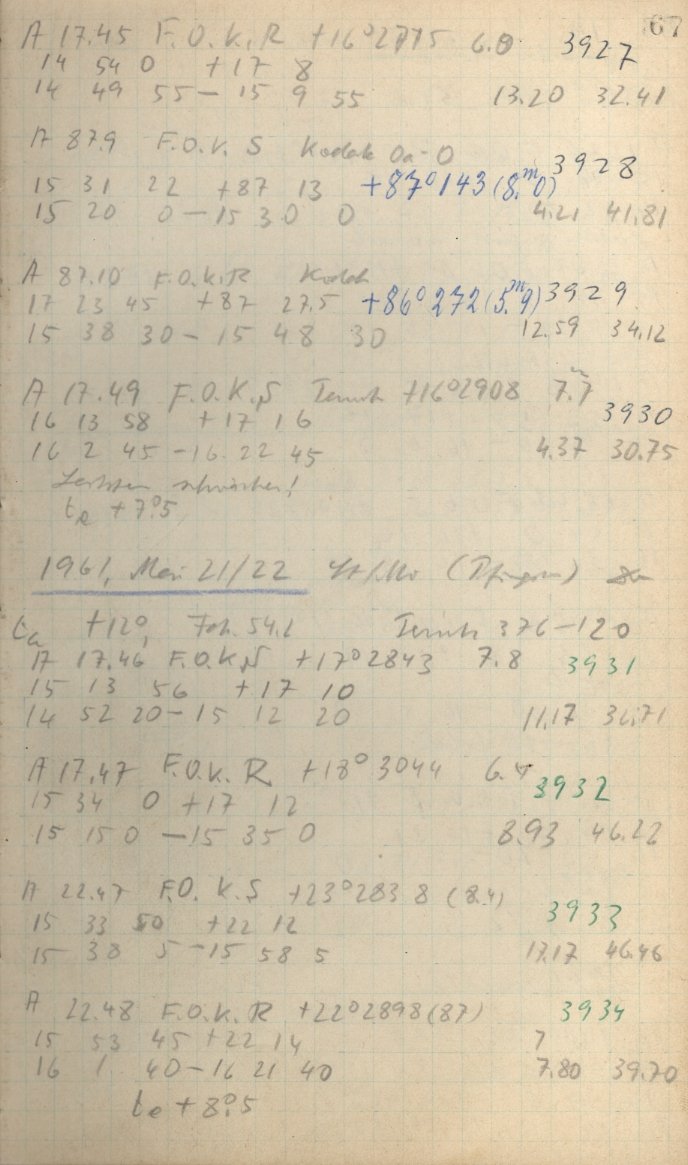 67
A 17.45 F.O.K.R +16°2775 6.0 3927
14 54 0 +17 8
14 49 55 – 15 9 55 13.20 32.41
A 87.9 F.O.K. S Kodak Oa-O 3928
15 31 22 +87 13 +87°143 (8.ᵐ0)
15 20 0 – 15 30 0 4.21 41.81
A 87.10 F.O.K.R Kodak
17 23 45 +87 27.5 +86°272 (5.ᵐ9) 3929
15 38 30 – 15 48 30 12.59 34.12
A 17.49 F.O.K.S +16°2908 7.ᵐ7
16 13 58 +17 16 3930
16 2 45 – 16 22 45 4.37 30.75
schwächer!
tₑ +7°.5
1961, Mai 21/22 (Pfingsten)
tₐ +12°, 376–120
A 17.46 F.O.K.S +17°2843 7.8 3931
15 13 56 +17 10
14 52 20 – 15 12 20 11.17 36.71
A 17.47 F.O.K. R +18°3044 3932
15 34 0 +17 12
15 15 0 – 15 35 0 8.93 46.22
A 22.47 F.O.K.S +23°2838 (8.4)
15 33 50 +22 12 3933
15 38 5 – 15 58 5 46.46
A 22.48 F.O.K.R +22°2898 (87) 3934
15 53 45 +22 14 7
16 1 40 – 16 21 40 7.80 39.70
tₑ +8°.5